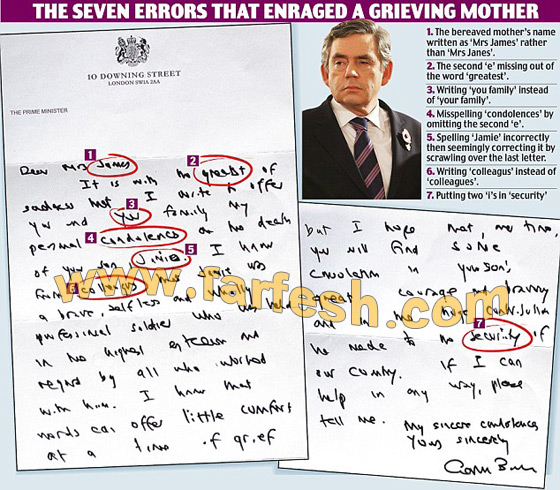 THE SEVEN ERRORS THAT ENRAGED A GRIEVING MOTHER
10 DOWNING STREET
LONDON SW1A 2AA
THE PRIME MINISTER
1
2
Dear Mrs James
It is with the greatst of
sadness that I write to offer
3
you and you family my
4
personal condolencs on the death
5
of your son, Jamie. I know
6
from colleagus that Jamie was
a brave, selfless and wholly
professional soldier who was held
in the highest esteem and
regard by all who worked
with him. I know that
words can offer little comfort
at a time of grief
but I hope that, in time,
you will find some
consolation in your son's
great courage and bravery
and the huge contribution
7
he made to the securiity of
our country. If I can
help in any way, please
tell me. My sincere condolences,
Yours sincerely
www.farfesh.com
1. The bereaved mother's name
written as 'Mrs James' rather
than 'Mrs Janes'.
2. The second 'e' missing out of
the word 'greatest'.
3. Writing 'you family' instead
of 'your family'.
4. Misspelling 'condolences' by
omitting the second 'e'.
5. Spelling 'Jamie' incorrectly
then seemingly correcting it by
scrawling over the last letter.
6. Writing 'colleagus' instead of
'colleagues'.
7. Putting two 'i's in 'security'